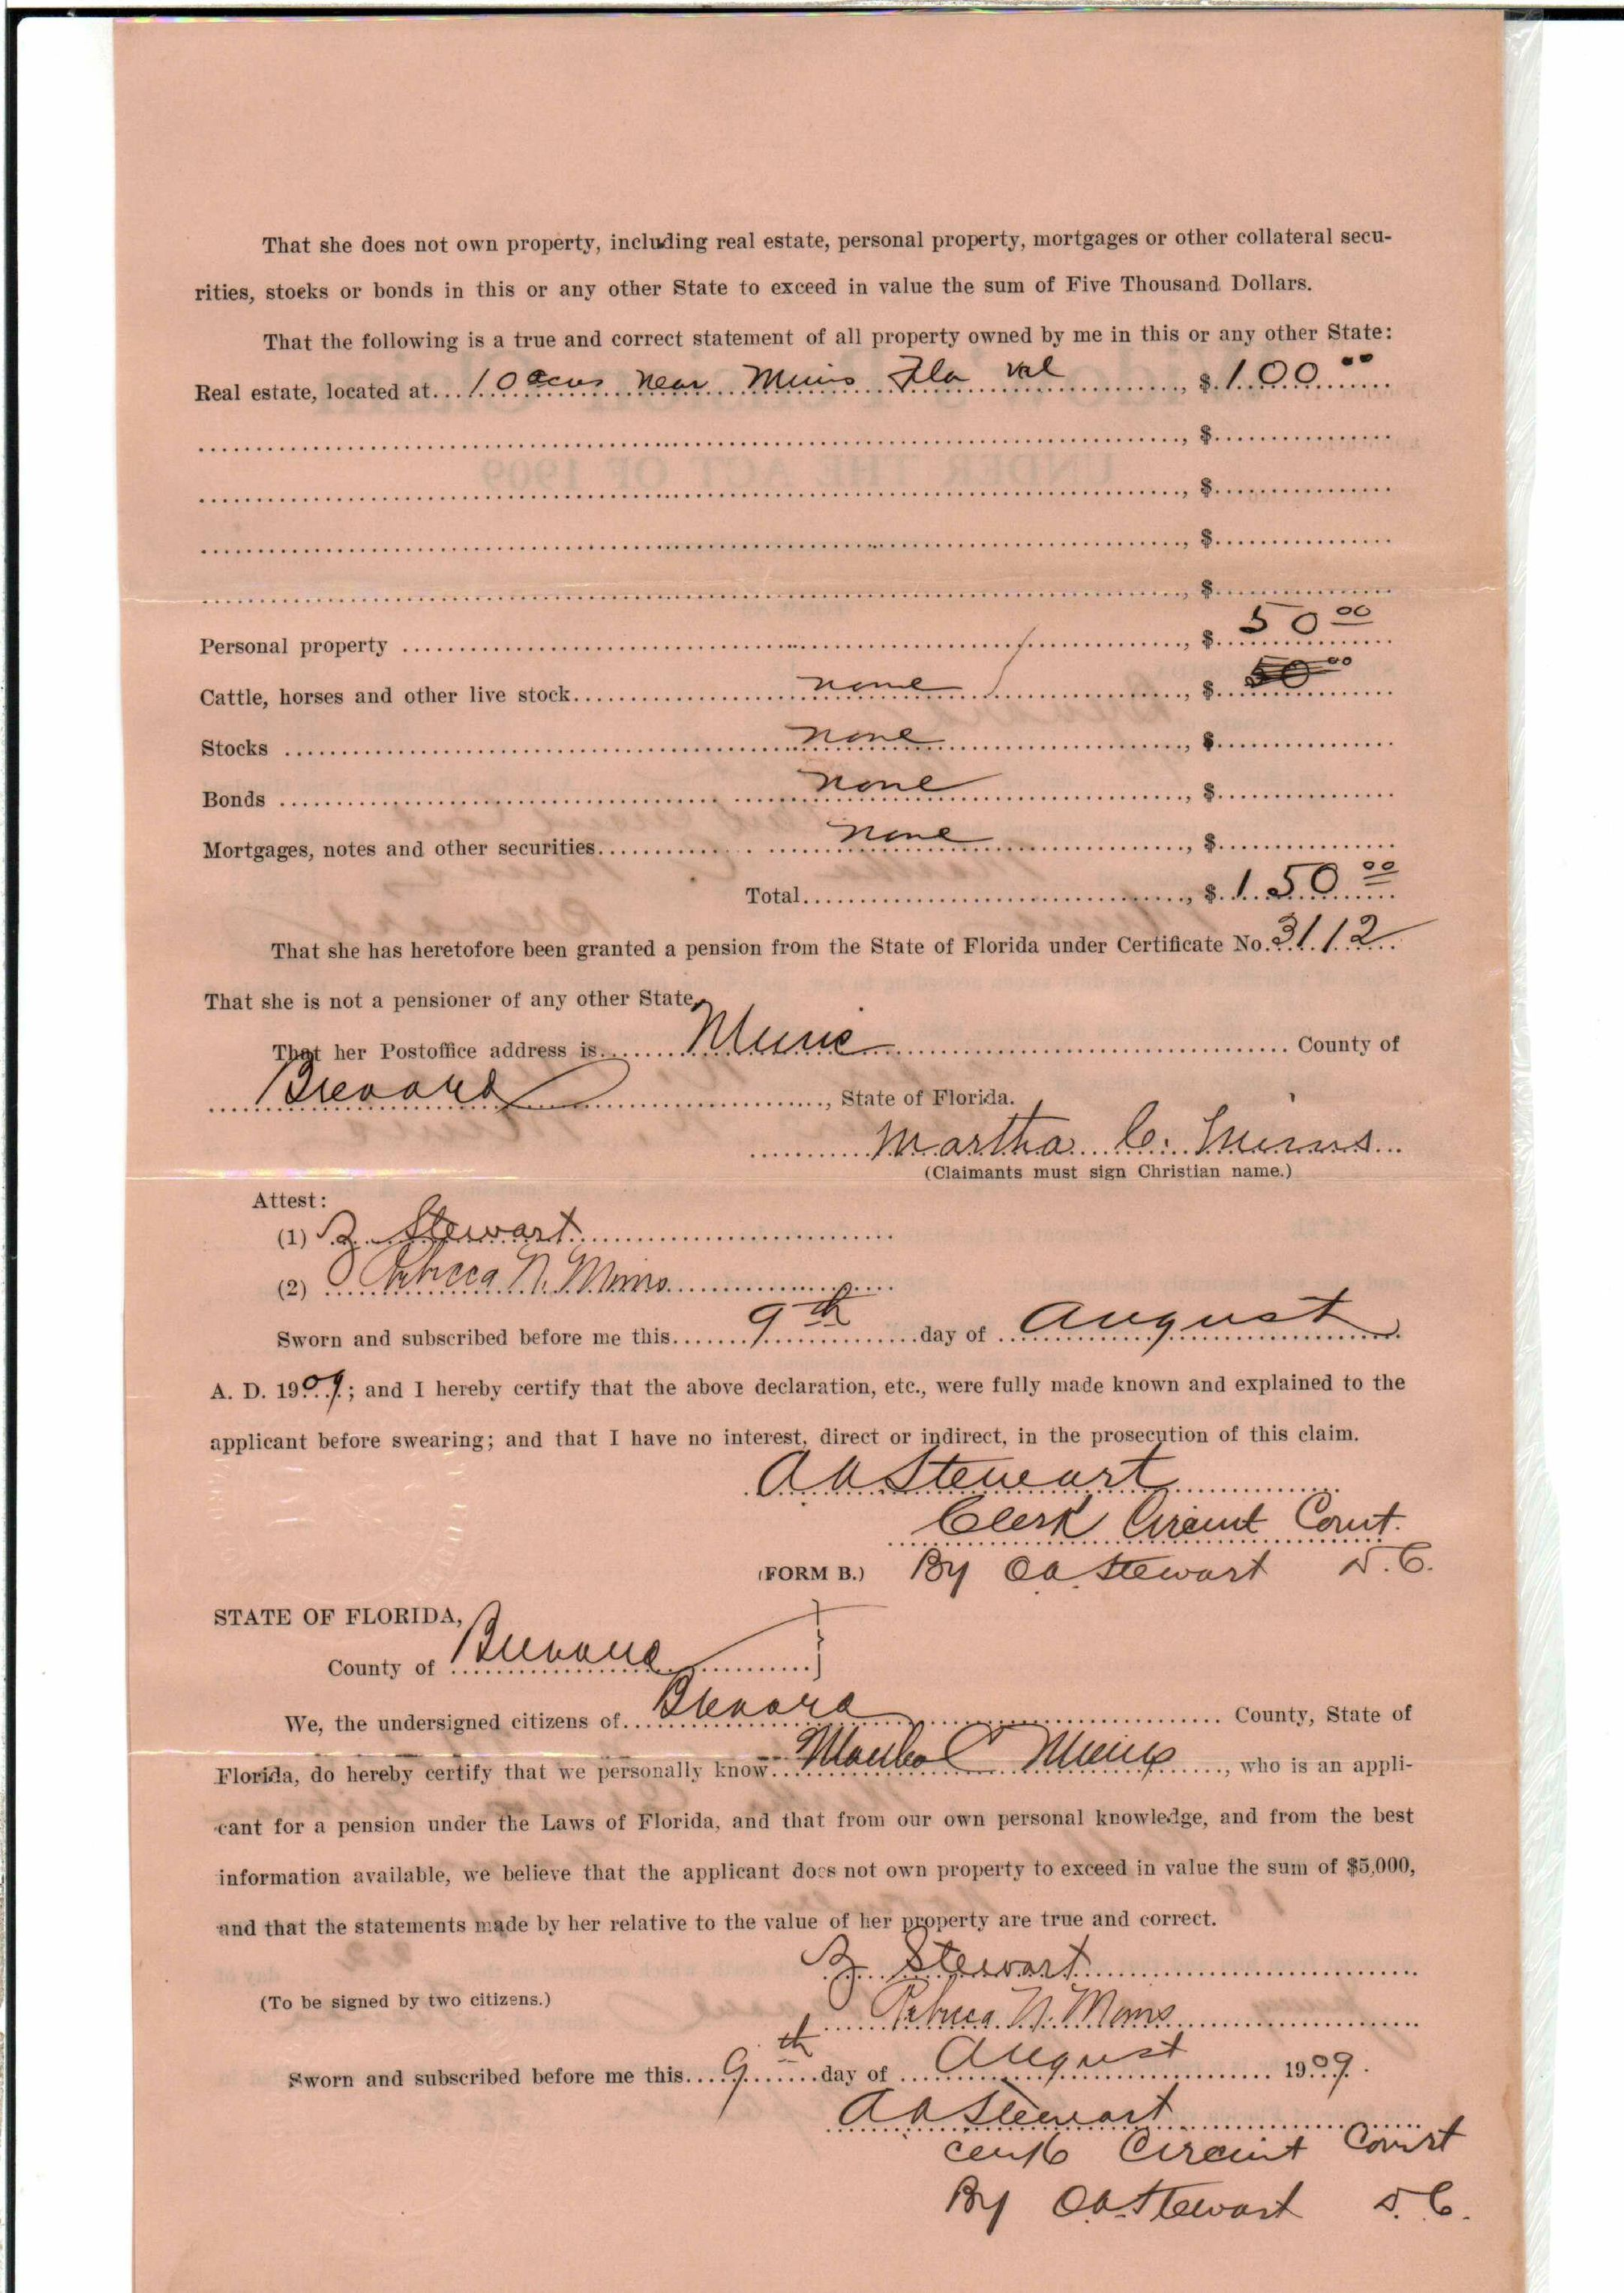 That she does not own property, including real estate, personal property, mortgages or other collateral secu-
rities, stocks or bonds in this or any other State to exceed in value the sum of Five Thousand Dollars.
That the following is a true and correct statement of all property owned by me in this or any other State:
Real estate, located at... 10 acres near Mims Fla val ..., $ 100 00
UNDER THE ACT OF 1909
..., $...
..., $...
..., $...
..., $...
Personal property ..., $ 50 00
Cattle, horses and other live stock... none ..., $ 50 00
Stocks ... none ..., $...
Bonds ... none ..., $...
Mortgages, notes and other securities... none ..., $...
Total..., $ 150 00
That she has heretofore been granted a pension from the State of Florida under Certificate No. 3112
That she is not a pensioner of any other State,
That her Postoffice address is... Mims ... County of
Brevard ..., State of Florida.
Martha C. Mims
(Claimants must sign Christian name.)
Attest:
(1) Z Stewart
(2) Rebecca N. Mims
Sworn and subscribed before me this... 9th ...day of ... August
A. D. 1909; and I hereby certify that the above declaration, etc., were fully made known and explained to the
applicant before swearing; and that I have no interest, direct or indirect, in the prosecution of this claim.
A A Stewart
Clerk Circuit Court.
(FORM B.) By O.A. Stewart D.C.
STATE OF FLORIDA,
County of Brevard
We, the undersigned citizens of... Brevard ... County, State of
Florida, do hereby certify that we personally know... Martha C Mims ..., who is an appli-
cant for a pension under the Laws of Florida, and that from our own personal knowledge, and from the best
information available, we believe that the applicant does not own property to exceed in value the sum of $5,000,
and that the statements made by her relative to the value of her property are true and correct.
Z Stewart
(To be signed by two citizens.)
Rebecca N. Mims
Sworn and subscribed before me this... 9th ...day of ... August ... 1909.
A A Stewart
Clerk Circuit Court
By O.A. Stewart D.C.